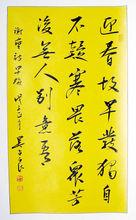 迎春故早發獨自
不疑寒畏落眾芳
後無人別意看
詩早梅